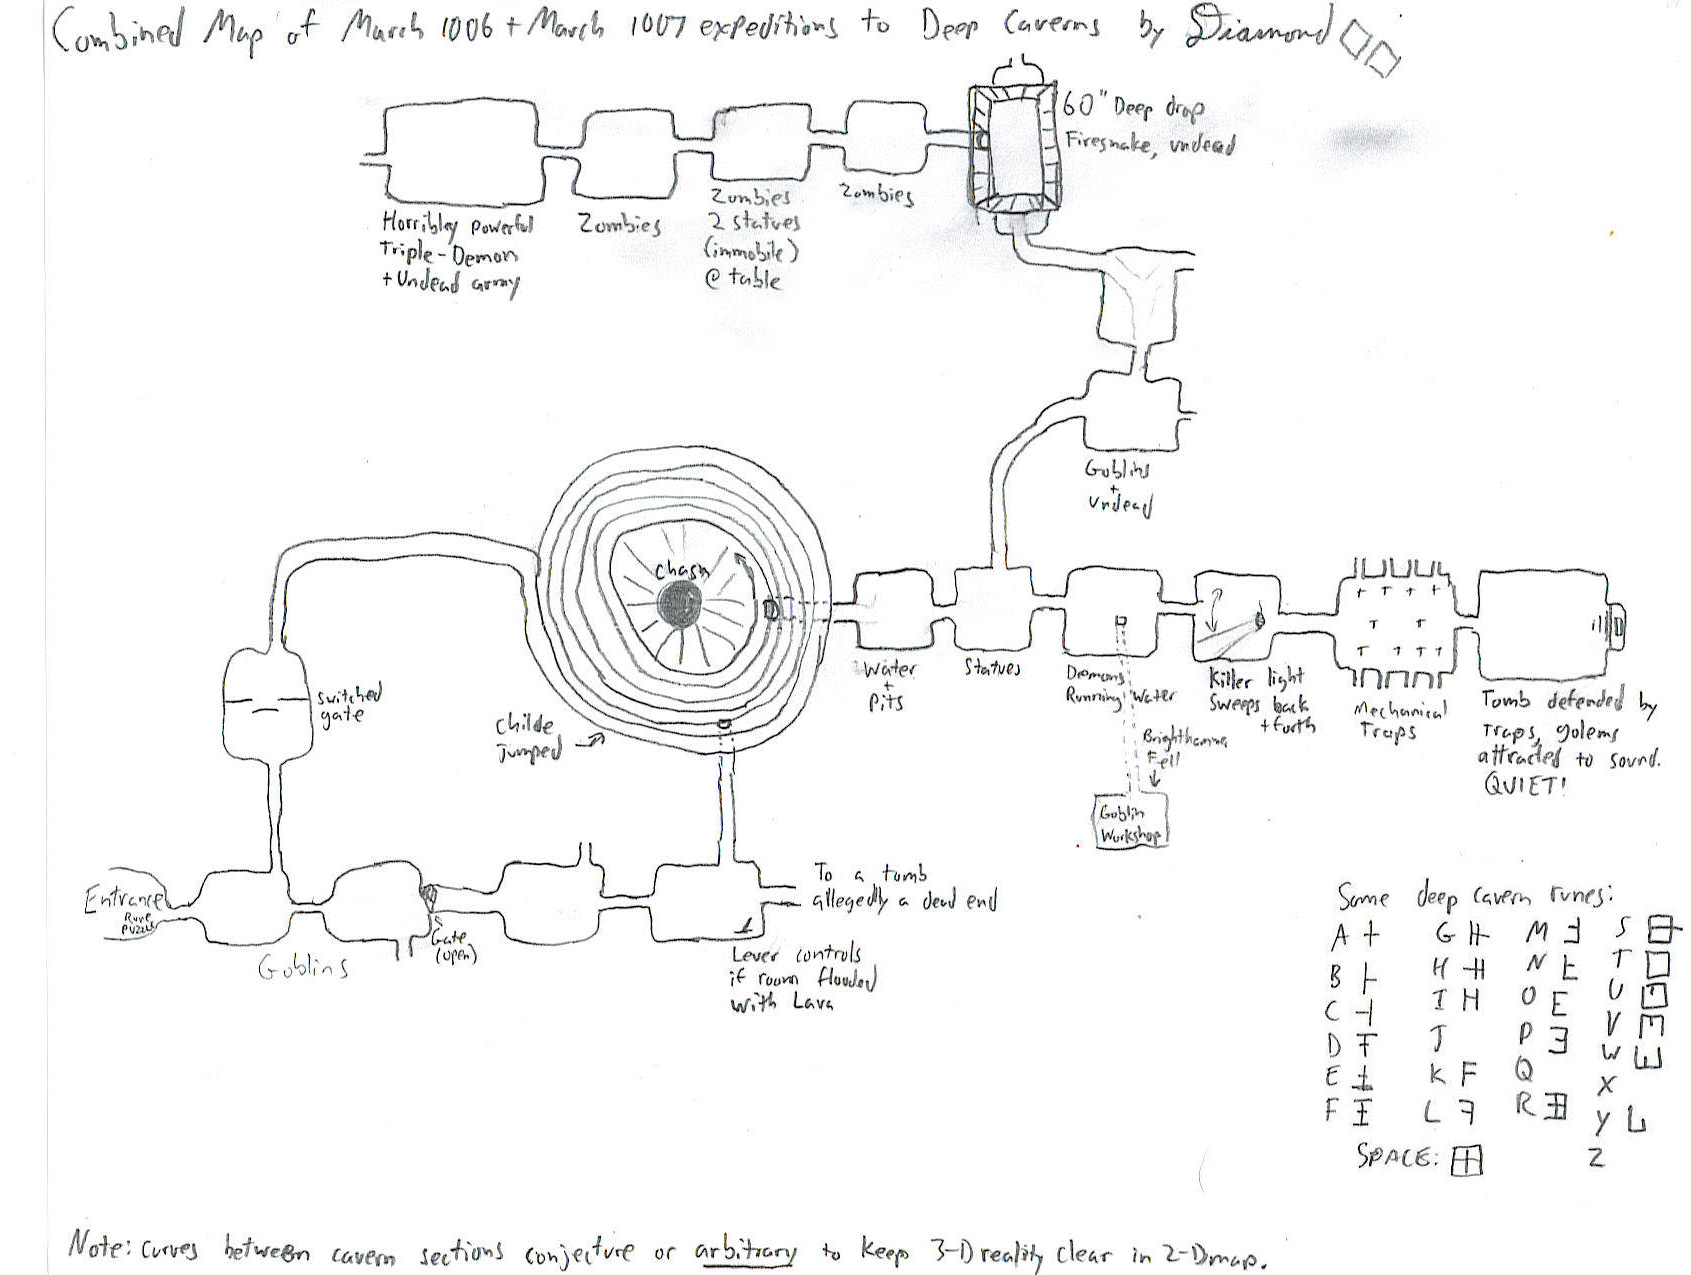 Combined Map of March 1006 + March 1007 expeditions to Deep Caverns by Diamond
60" Deep drop
Firesnake, undead
Horribley powerful
Triple-Demon
+ Undead army
Zombies
Zombies
2 statues
(immobile)
@ table
Zombies
Goblins
+
Undead
Chasm
Switched
gate
Childe
Jumped
Water
+
Pits
Statues
Demons
Running Water
Killer light
Sweeps back
+ forth
Mechanical
Traps
Tomb defended by
Traps, golems
attracted to sound.
QUIET!
Fell
Goblin
Workshop
Entrance
Rune
Puzzle
Goblins
Gate
(open)
To a tomb
allegedly a dead end
Lever controls
if room flooded
with Lava
Some deep cavern runes:
A G M S
B H N T
C I O U
D J P V
E K Q W
F L R X
Y
SPACE:
Z
Note: Curves between cavern sections conjecture or arbitrary to keep 3-D reality clear in 2-D map.